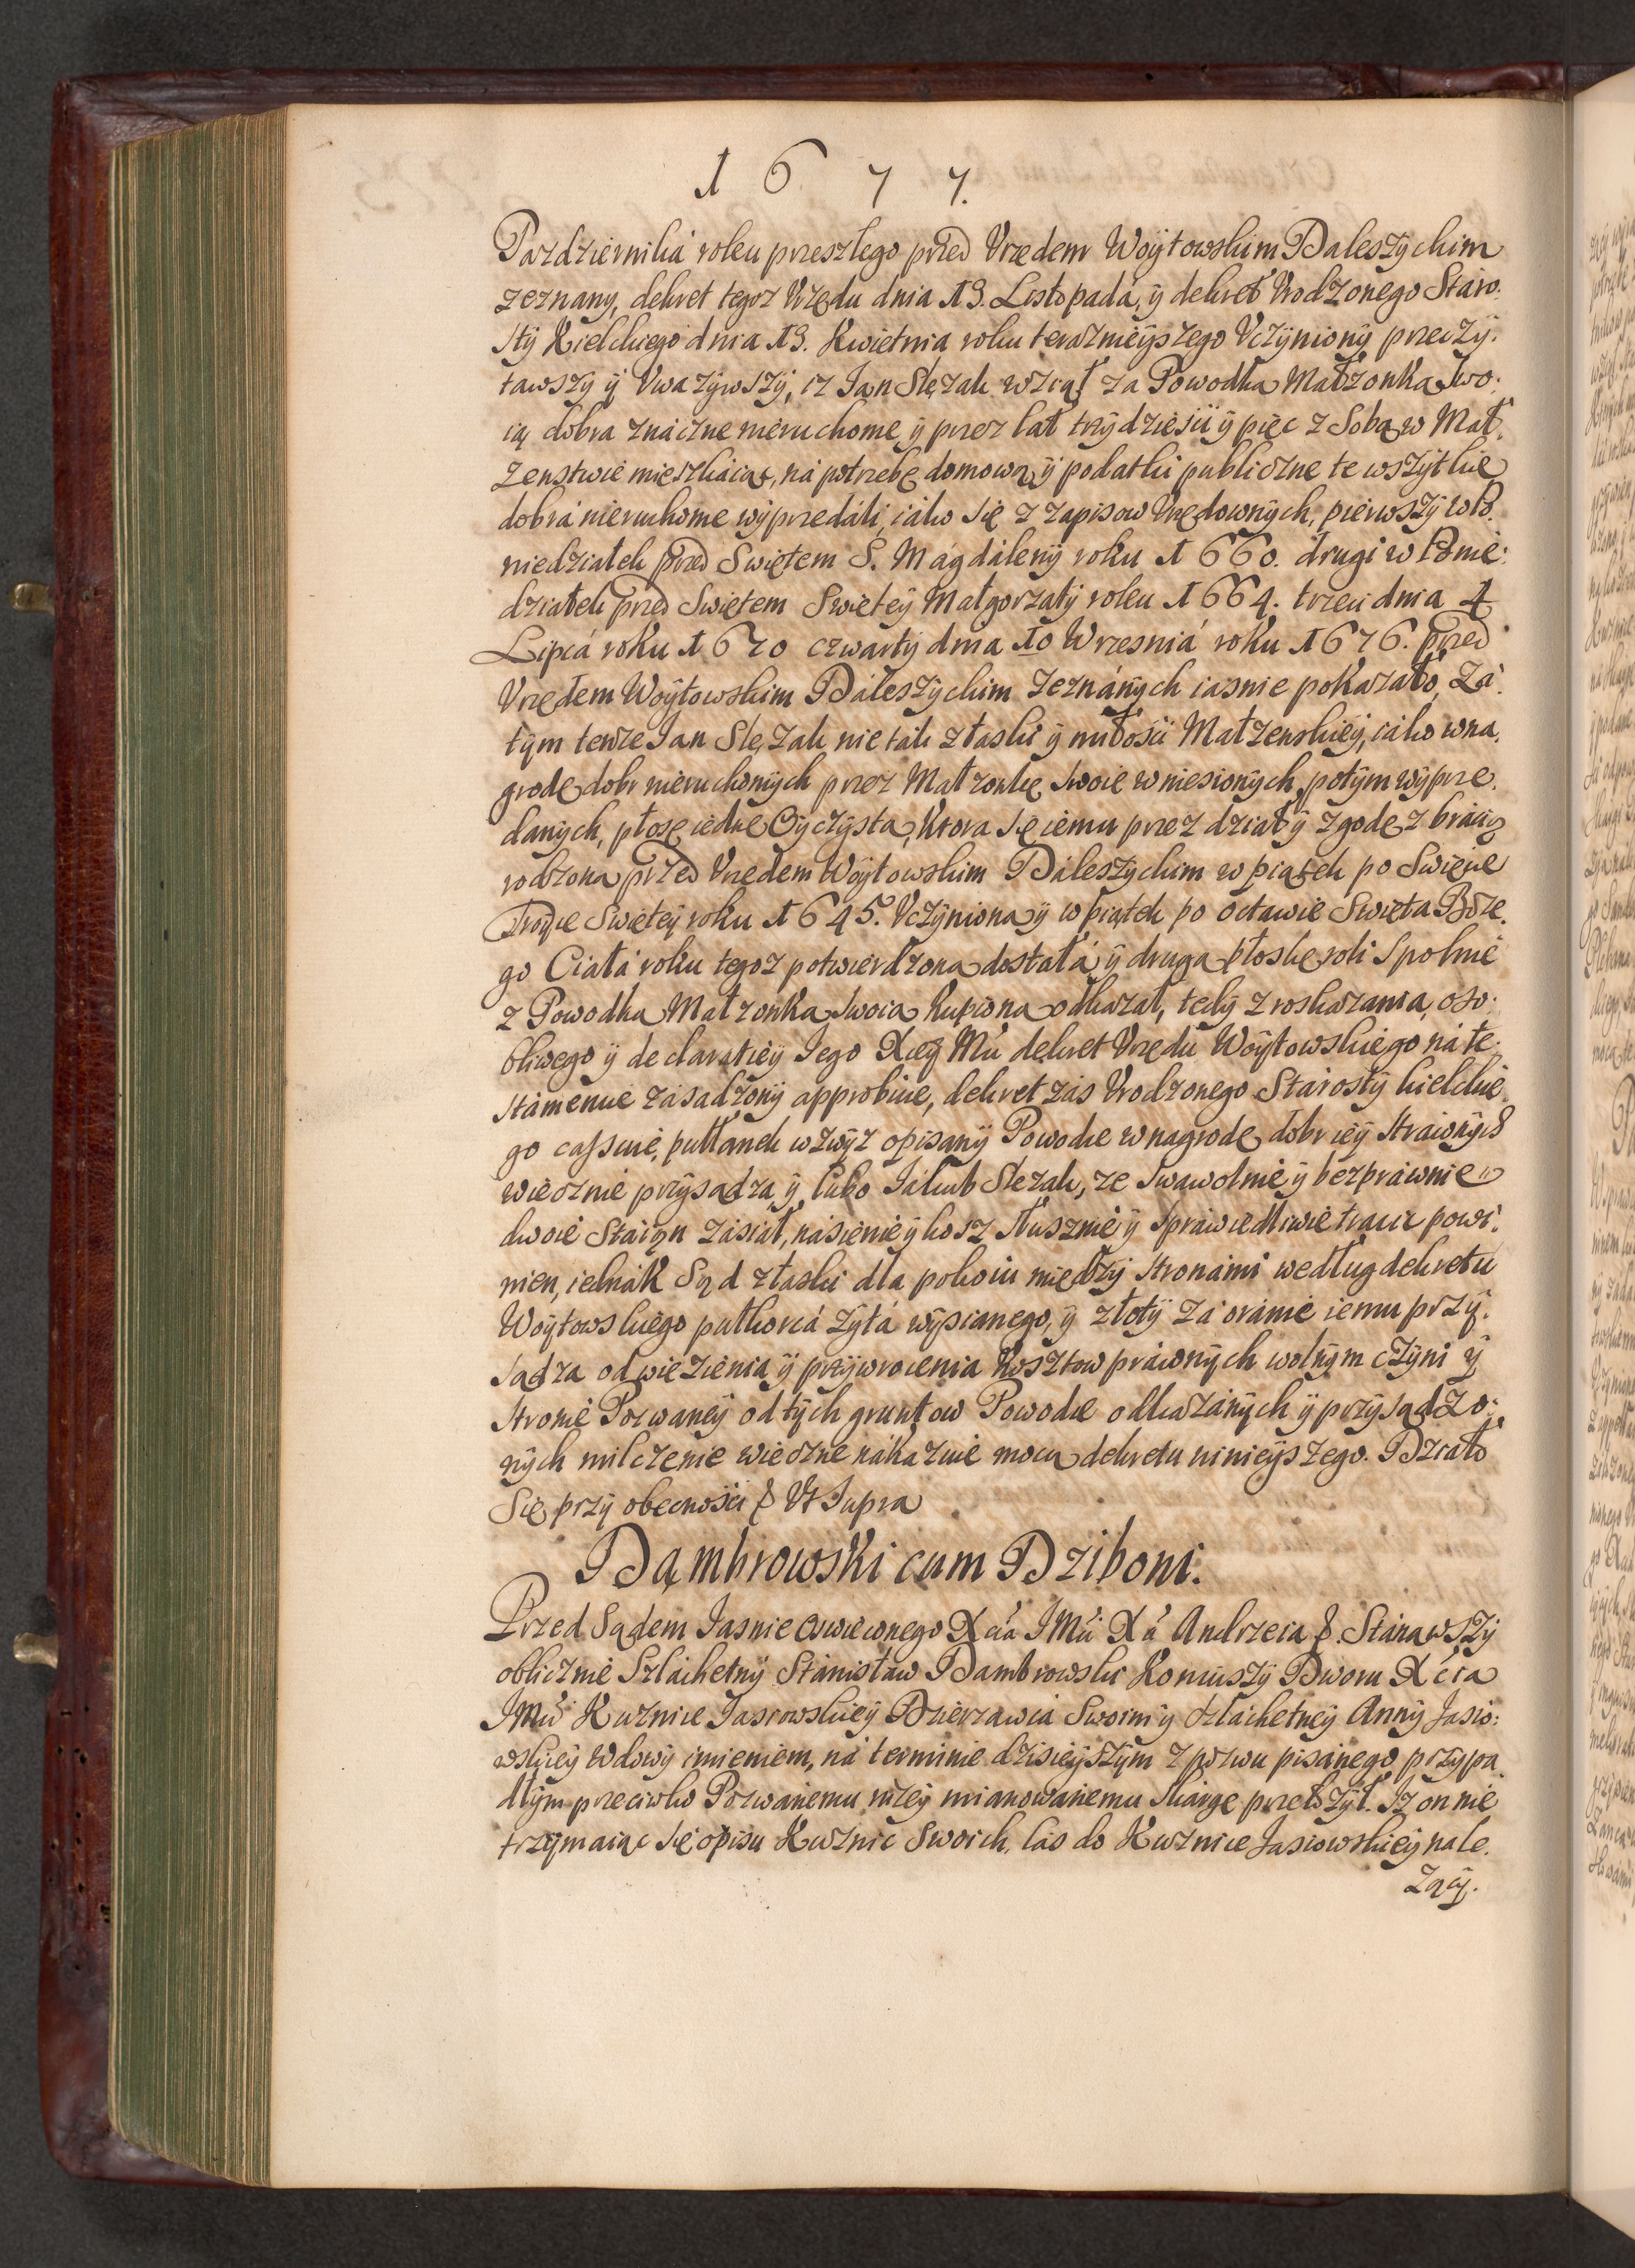 1677.
Pazdziernika roku przeszłego przed Vrzędem Woÿtowskim Daleszÿckim
zeznany, dekret tegoz Vrzędu dnia 13. Listopadá, ÿ dekret Vrodzonego Staro:
stÿ Kielckiego dnia 13. Kwietnia roku teraznieÿszego Vczÿnionÿ przeczÿ:
tawszÿ ÿ Vwazÿwszÿ, iz Jan Slęzak wziął za Powodką Małzonką swo:
ią dobra znáczne nieruchome ÿ przez lat trzÿdziesći ÿ pięc z Sobą w Mał:
zenstwie mieszkáiąc, ná potrzebę domową ÿ podatki publiczne te wszÿtkie
dobrá nieruchome wÿprzedáli, iako się z zapisow Vrzędownÿch, pierwszÿ w Po:
niedziałek przed Swiętem S. Mágdálenÿ roku 1660. drugi w Ponie:
działek przed Swiętem Swięteÿ Małgorzatÿ roku 1664. trzeci dnia 4
Lipcá roku 1670 czwartÿ dnia 10 Wrzesniá roku 1676. przed
Vrzędem Woÿtowskim Dáleszÿckim zeznánÿch iasnie pokazáło, Zá:
tÿm tenze Jan Slęzak nie ták z łaski ÿ miłośći Małzenskieÿ, iako wna:
grodę dobr nieruchomÿch przez Małzonkę swoię wniesionÿch, potÿm wÿprze:
danÿch, płosę iednę Oÿczÿstą, ktora się iemu przez działÿ zgodę z bráćią
rodzoną przed Vrzędem Woÿtowskim Dáleszÿckim w piątek po Swięcie
Troÿce Swięteÿ roku 1645. Vczÿnioną ÿ w piątek po octawie Swięta Boze:
go Ciáłá roku tegoz potwierdzoną dostáłá, ÿ drugą płoskę roli Spolnie
z Powodką Małzonką swoią kupioną odkazał, tedÿ z roskazania oso:
bliwego ÿ declaratieÿ Jego Xcey Mći dekret Vrzędu Woÿtowskiego ná te:
stámencie zásadzonÿ approbuie, dekret zás Vrodzonego Stárostÿ kielckie:
go cassuie, pułłanek wzwÿz opisanÿ Powodce wnagrodę dobr ieÿ strawionÿch
wiecznie przÿsądza, ÿ lubo Jákub Slęzak, ze swawolnie ÿ bezpráwnie
dwoie Stáięn zásiał, násienie ÿ kosz słusznie ÿ spráwiedliwie traćic powi:
nien, iednák Sąd z łaski dla pokoiu międzÿ stronámi według dekretu
Woÿtowskiego pułkorcá zÿtá wÿsianego, ÿ złotÿ zá oránie iemu przÿ:
sądza od więzienia ÿ przÿwrocenia kosztow práwnÿch wolnÿm czÿni ÿ
stronie Pozwaneÿ od tÿch gruntow Powodce odkazánÿch ÿ przÿsądzo:
nÿch milczenie wieczne nákazuie mocą dekretu ninieÿszego. Działo
Się przÿ obecnośći & Vt Supra
Dąmbrowski cum Dziboni.
Przed Sądem Jasnie Oswieconego Xćiá JMći Xá Andrzeia &. Stánąwszÿ
oblicznie Szláchetnÿ Stánisław Dąmbrowski Koniuszÿ Dworu Xćia
JMći Kuznice Jasiowskieÿ Dzierzawca Swoim ÿ szláchetneÿ Annÿ Jasio:
wskieÿ wdowÿ imieniem, ná terminie dzisieÿszÿm z pozwu pisánego przÿpa:
dłÿm przeciwko Pozwánemu nizeÿ mianowánemu skárgę przełozÿł. Iz on nie
trzÿmaiąc się opisu Kuznic Swoich, las do Kuznice Jasiowskieÿ nale:
ząćÿ.